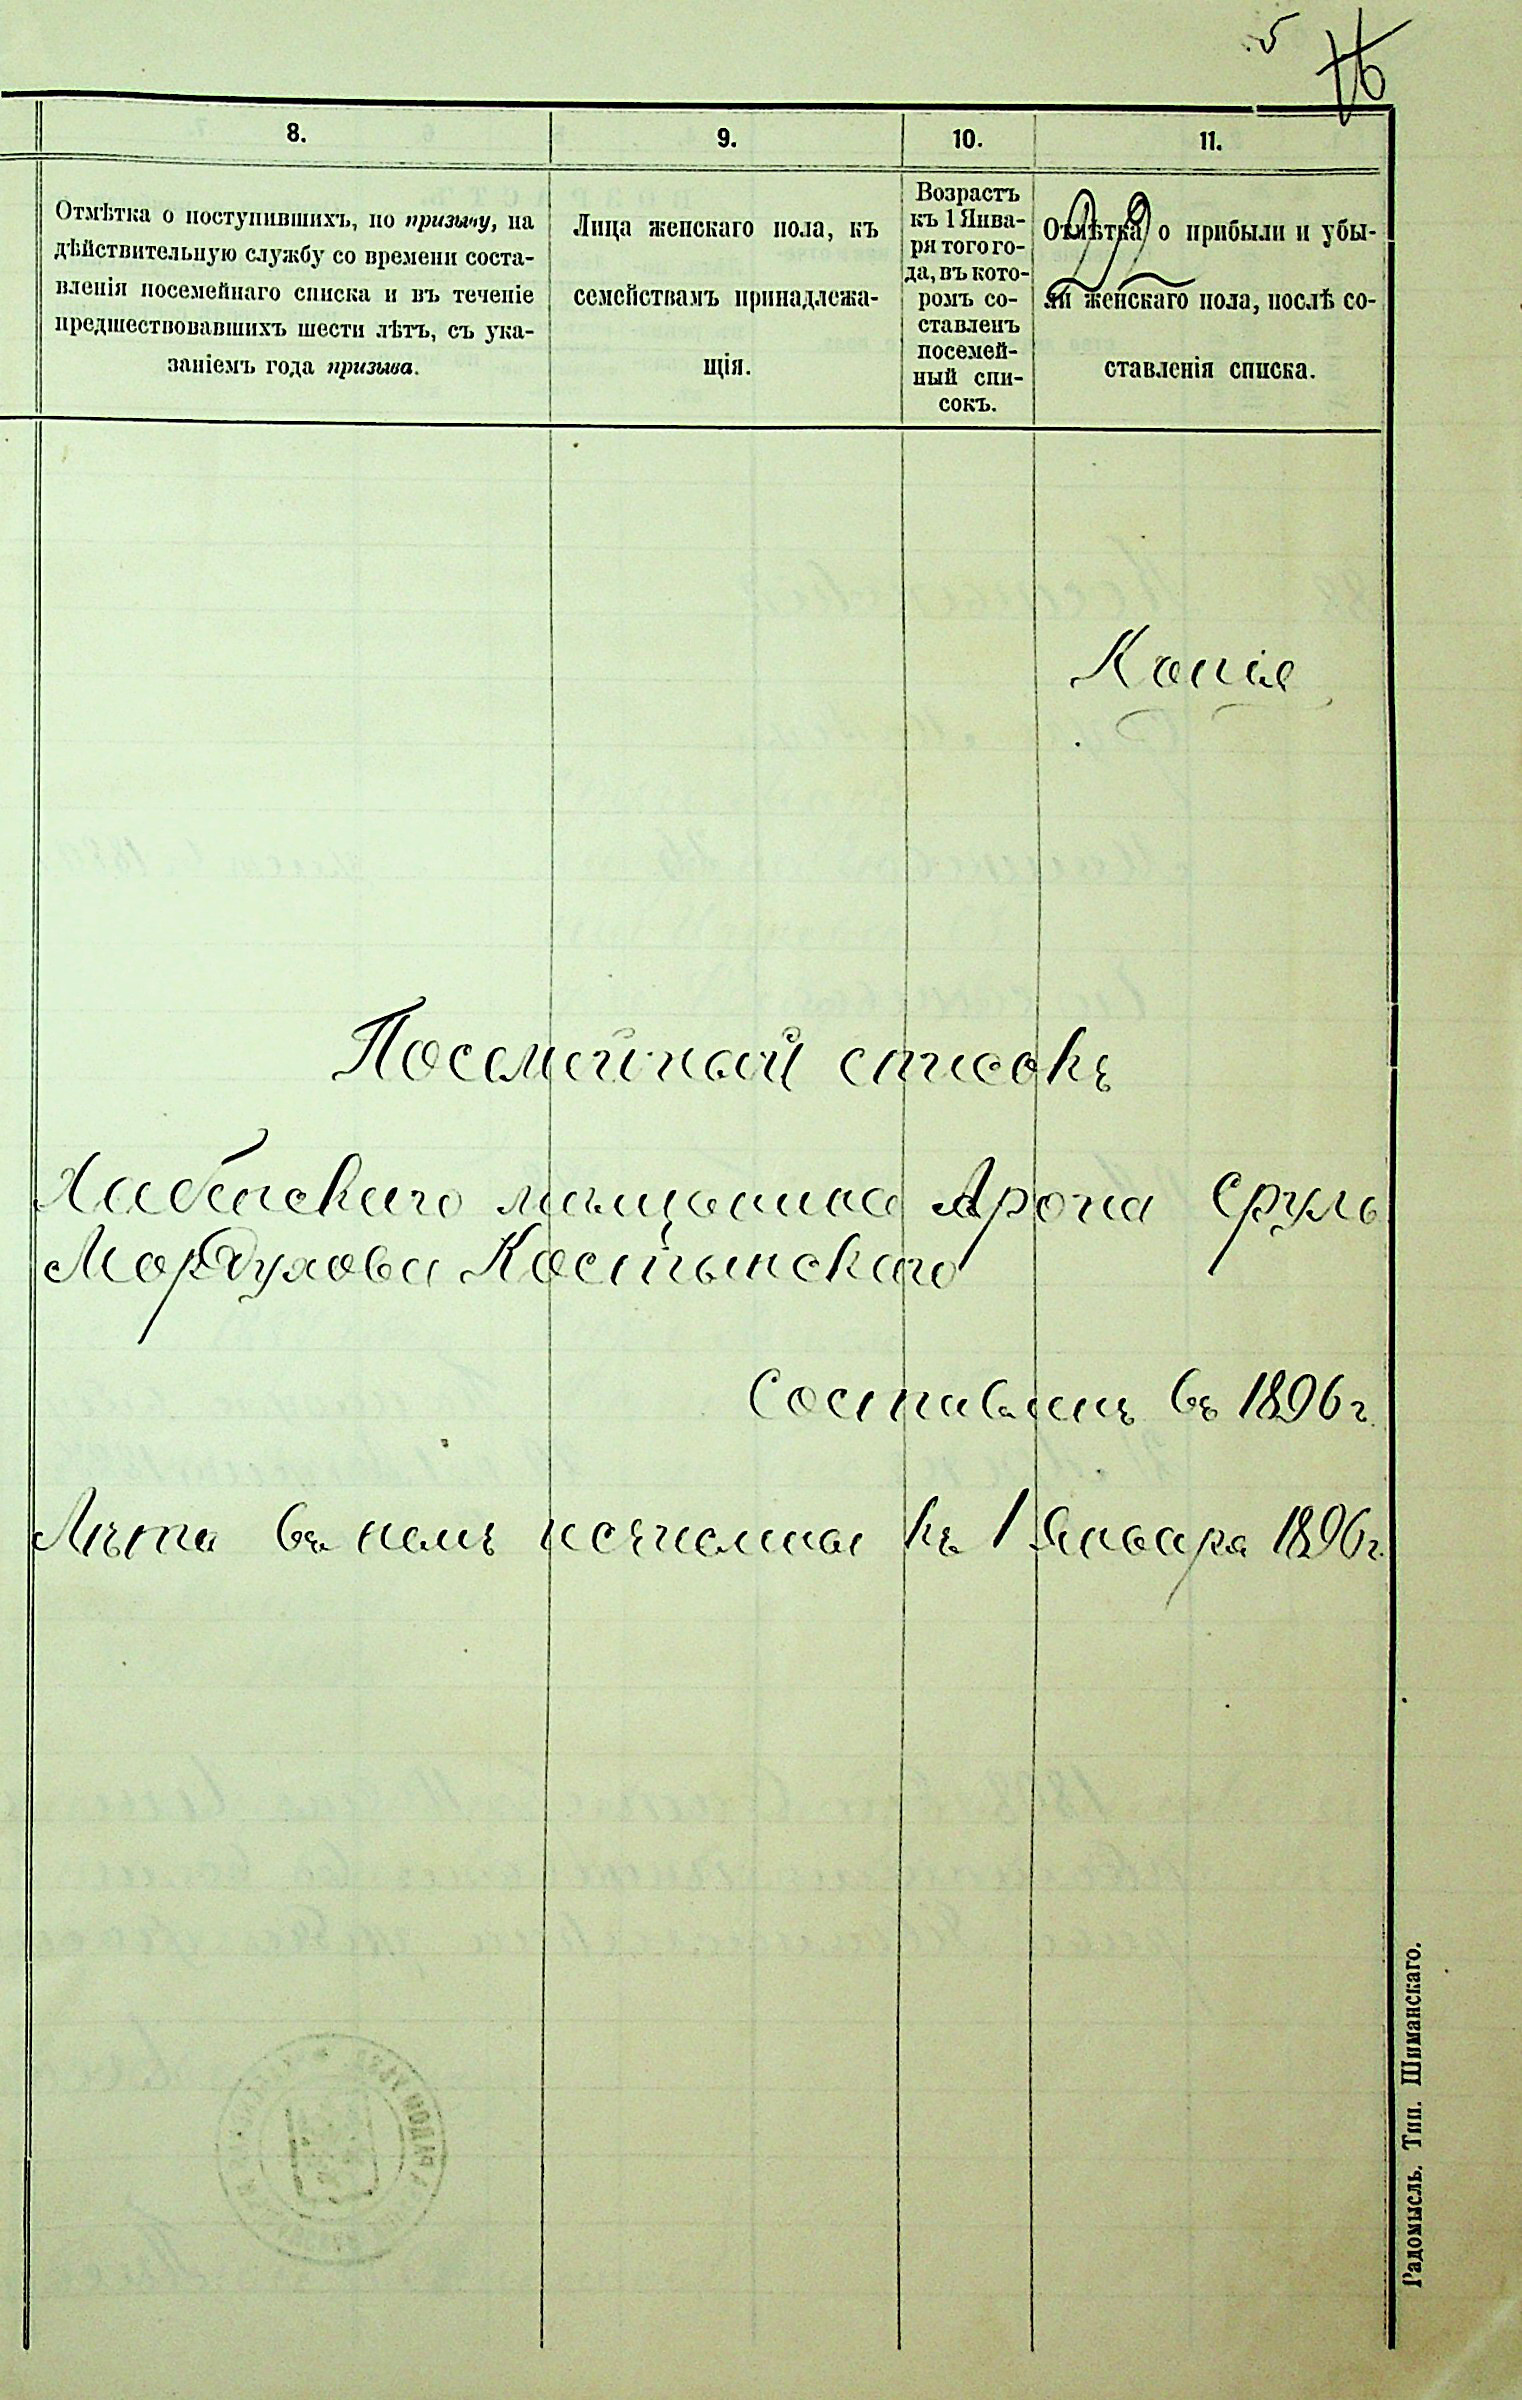 5
16
8.
9.
10.
11.
Отмѣтка о поступившихъ, по призыву, на
дѣйствительную службу со времени соста-
вленія посемейнаго списка и въ теченіе
предшествовавшихъ шести лѣтъ, съ ука-
заніемъ года призыва.
Лица женскаго пола, къ
семействамъ принадлежа-
щія.
Возрастъ
къ 1 Янва-
ря того го-
да, въ кото-
ромъ со-
ставленъ
посемей-
ный спи-
сокъ.
Отмѣтка о прибыли и убы-
ли женскаго пола, послѣ со-
ставленія списка.
22
Копія
Посемейный списокъ
Хабенскаго мѣщанина Арона Сруль
Мордухова Костынскаго
Составленъ въ 1896 г.
Лѣта въ немъ исчислены къ 1 Января 1896 г.
Радомысль. Тип. Шиманскаго.